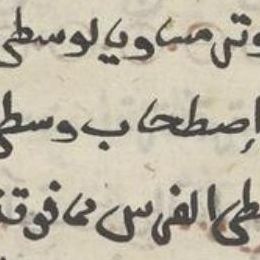 وتر مساويا لوسطى
إصطحاب وسطى
طى الفرس مما فوق